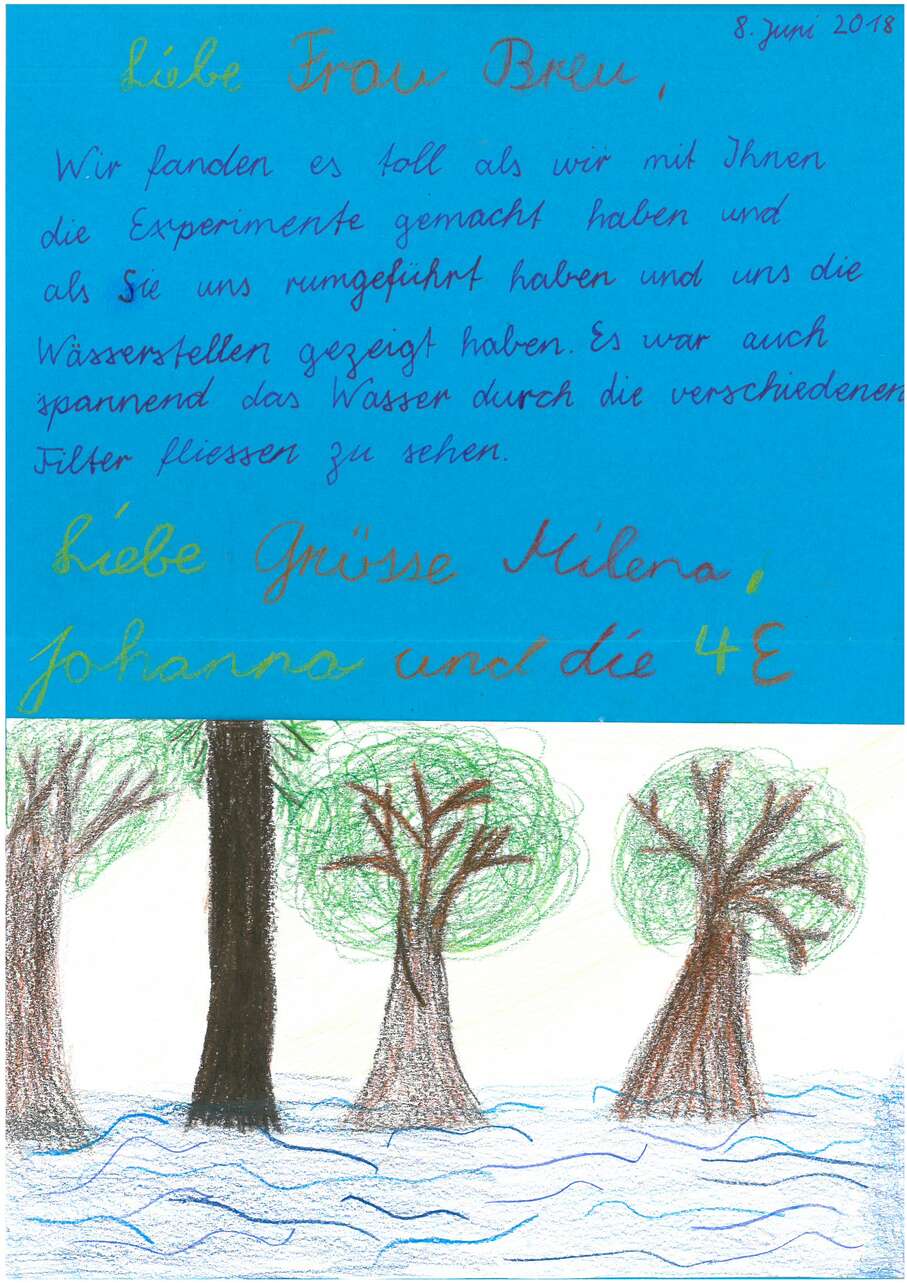 8. Juni 2018
Liebe Frau Breu,
Wir fanden es toll als wir mit Ihnen
die Experimente gemacht haben und
als Sie uns rumgeführt haben und uns die
Wässerstellen gezeigt haben. Es war auch
spannend das Wasser durch die verschiedenen
Filter fliessen zu sehen.
Liebe Grüsse Milena,
Johanna und die 4E